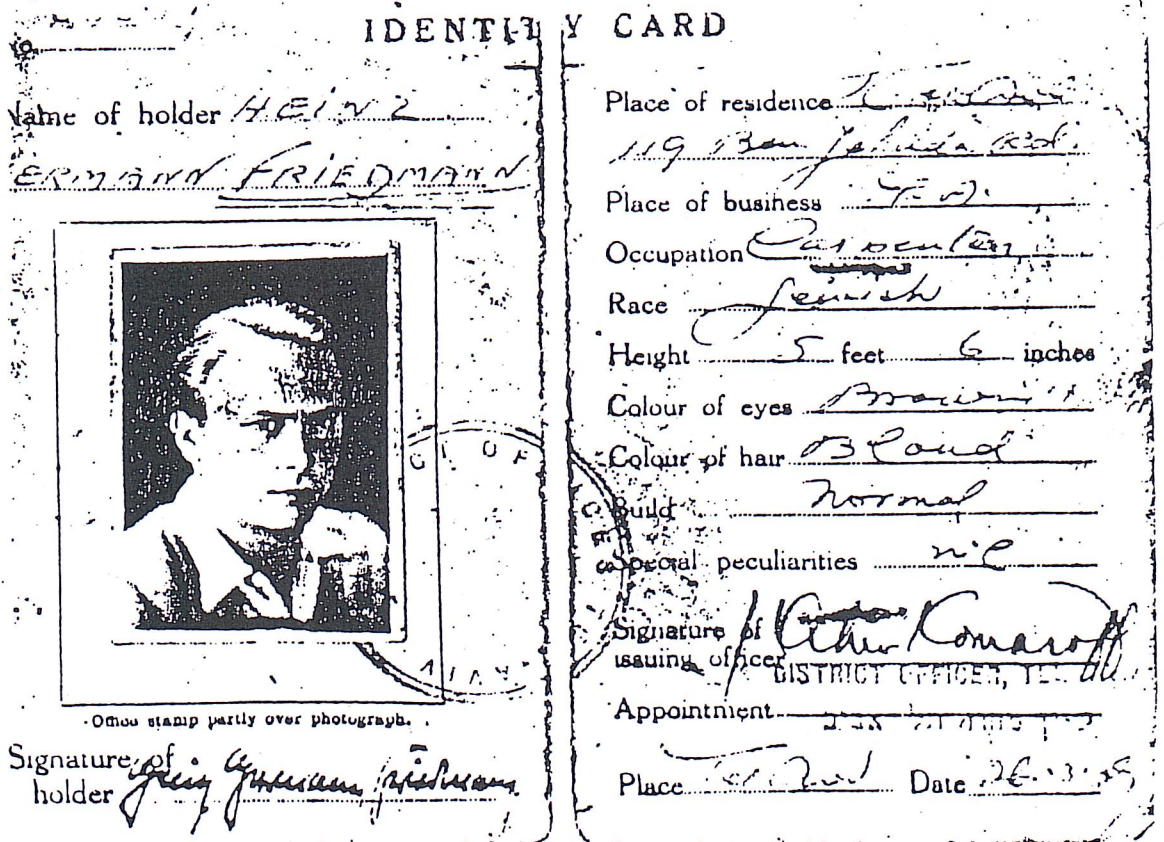 IDENTITY CARD
Name of holder HEINZ
ERMANN FRIEDMANN
Office stamp partly over photograph.
Signature of
holder Heinz Hermann Friedmann
Place of residence
119 Ben Jehuda Rd.
Place of business T.A.
Occupation Carpenter
Race Jewish
Height 5 feet 6 inches
Colour of eyes Brown
Colour of hair Blond
Build Normal
Special peculiarities nil
Signature of
issuing officer Komaroff
DISTRICT OFFICER, TEL
Appointment
Place Tel Aviv Date 26.3.
OF
AVIV